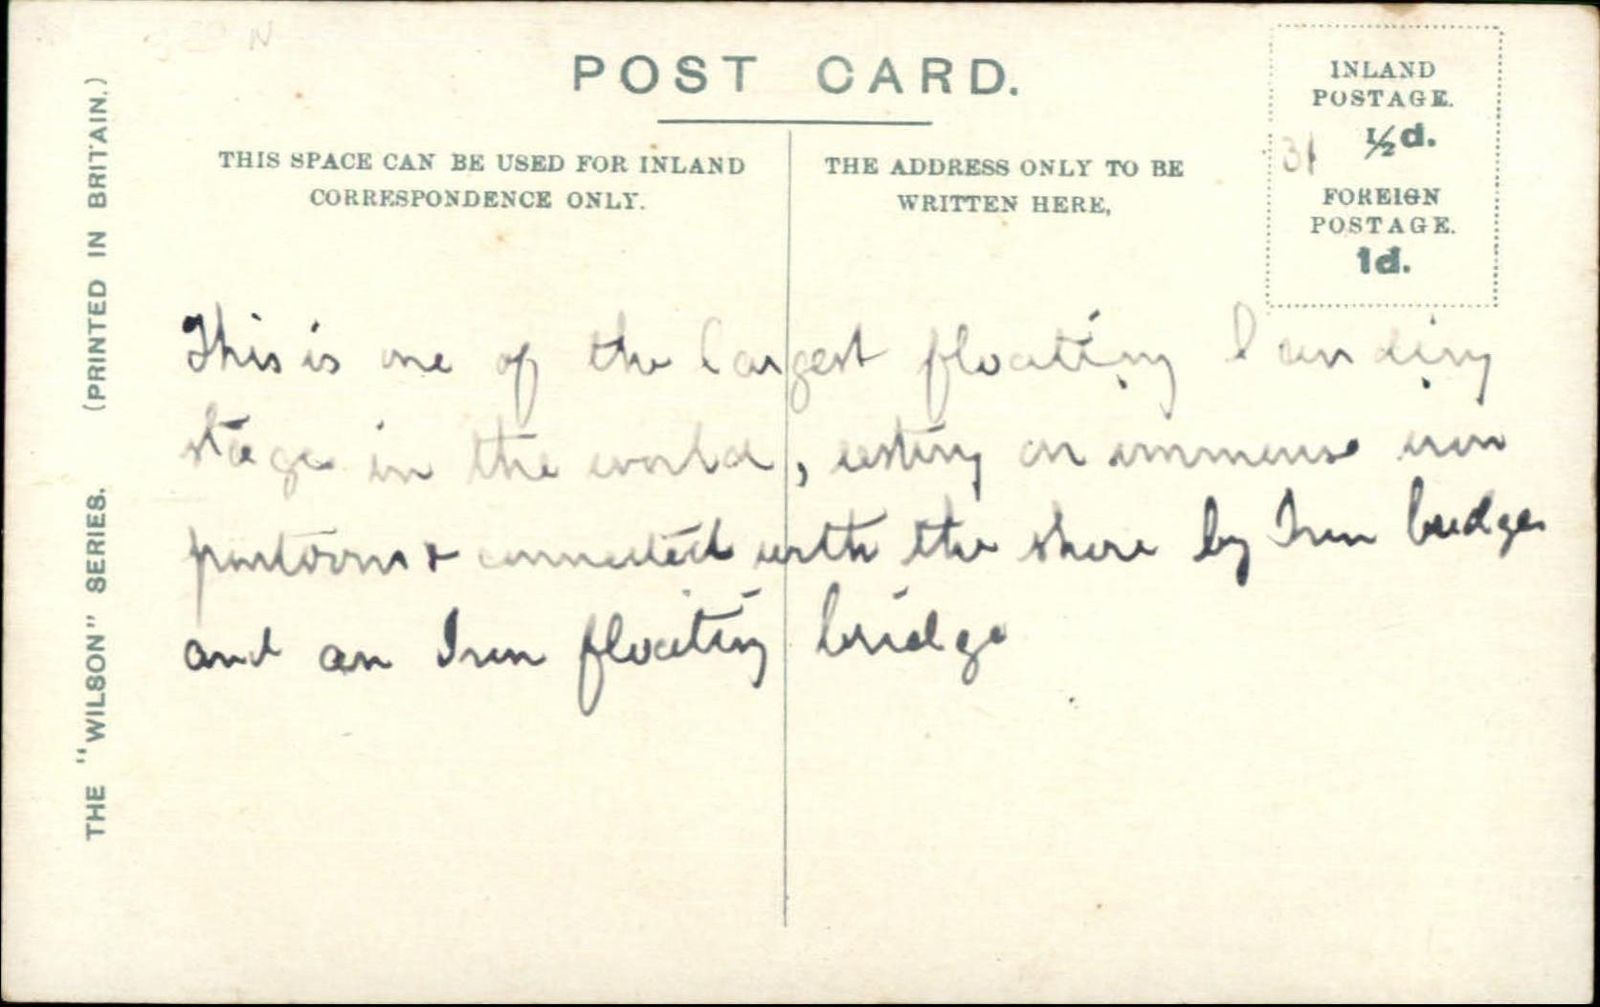 POST CARD.
THIS SPACE CAN BE USED FOR INLAND
CORRESPONDENCE ONLY.
THE ADDRESS ONLY TO BE
WRITTEN HERE.
INLAND
POSTAGE.
½d.
31
FOREIGN
POSTAGE.
1d.
THE "WILSON" SERIES. (PRINTED IN BRITAIN.)
This is one of the largest floating landing
stage in the world, resting on immense iron
pontoons & connected with the shore by Iron bridges
and an Iron floating bridge
N